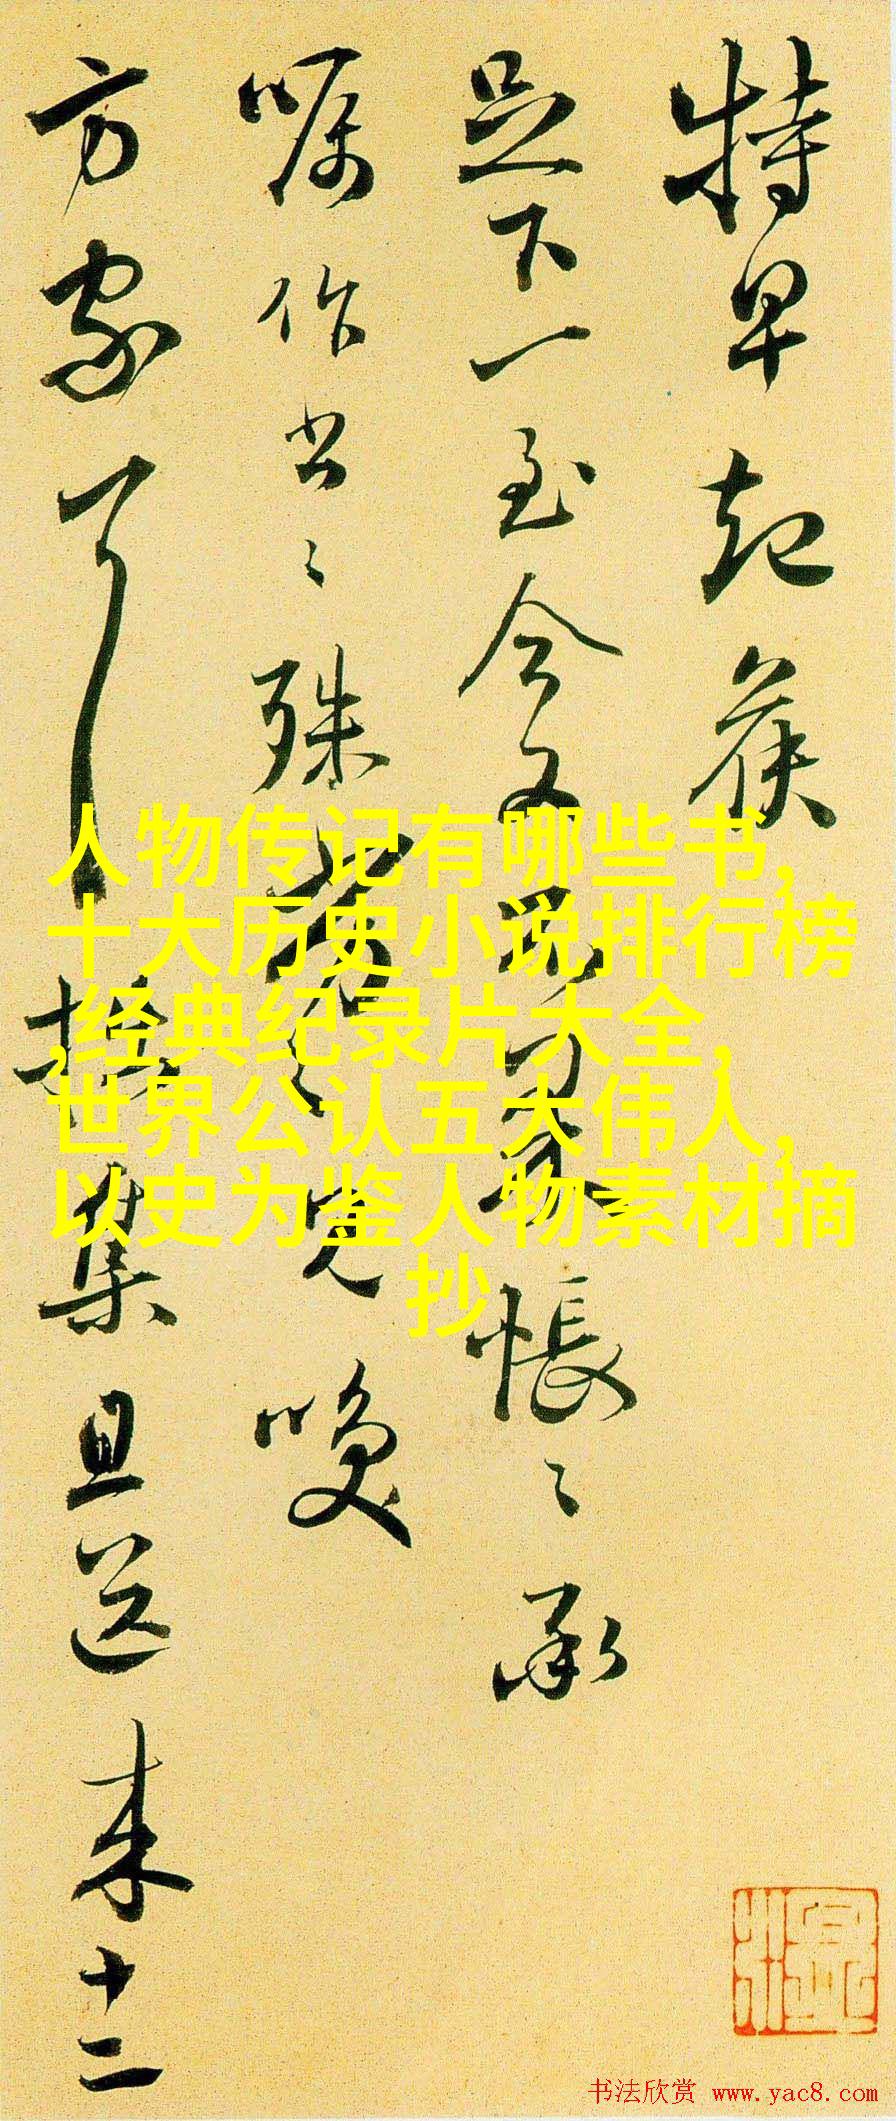 特早起候
足下一至今又帳〻承
嘱作书〻殊
方家集且送来十二
人物传记有哪些书,
十大历史小说排行榜
,经典纪录片大全,
世界公认五大伟人,
以史为鉴人物素材摘
抄
书法欣赏 www.yac8.com